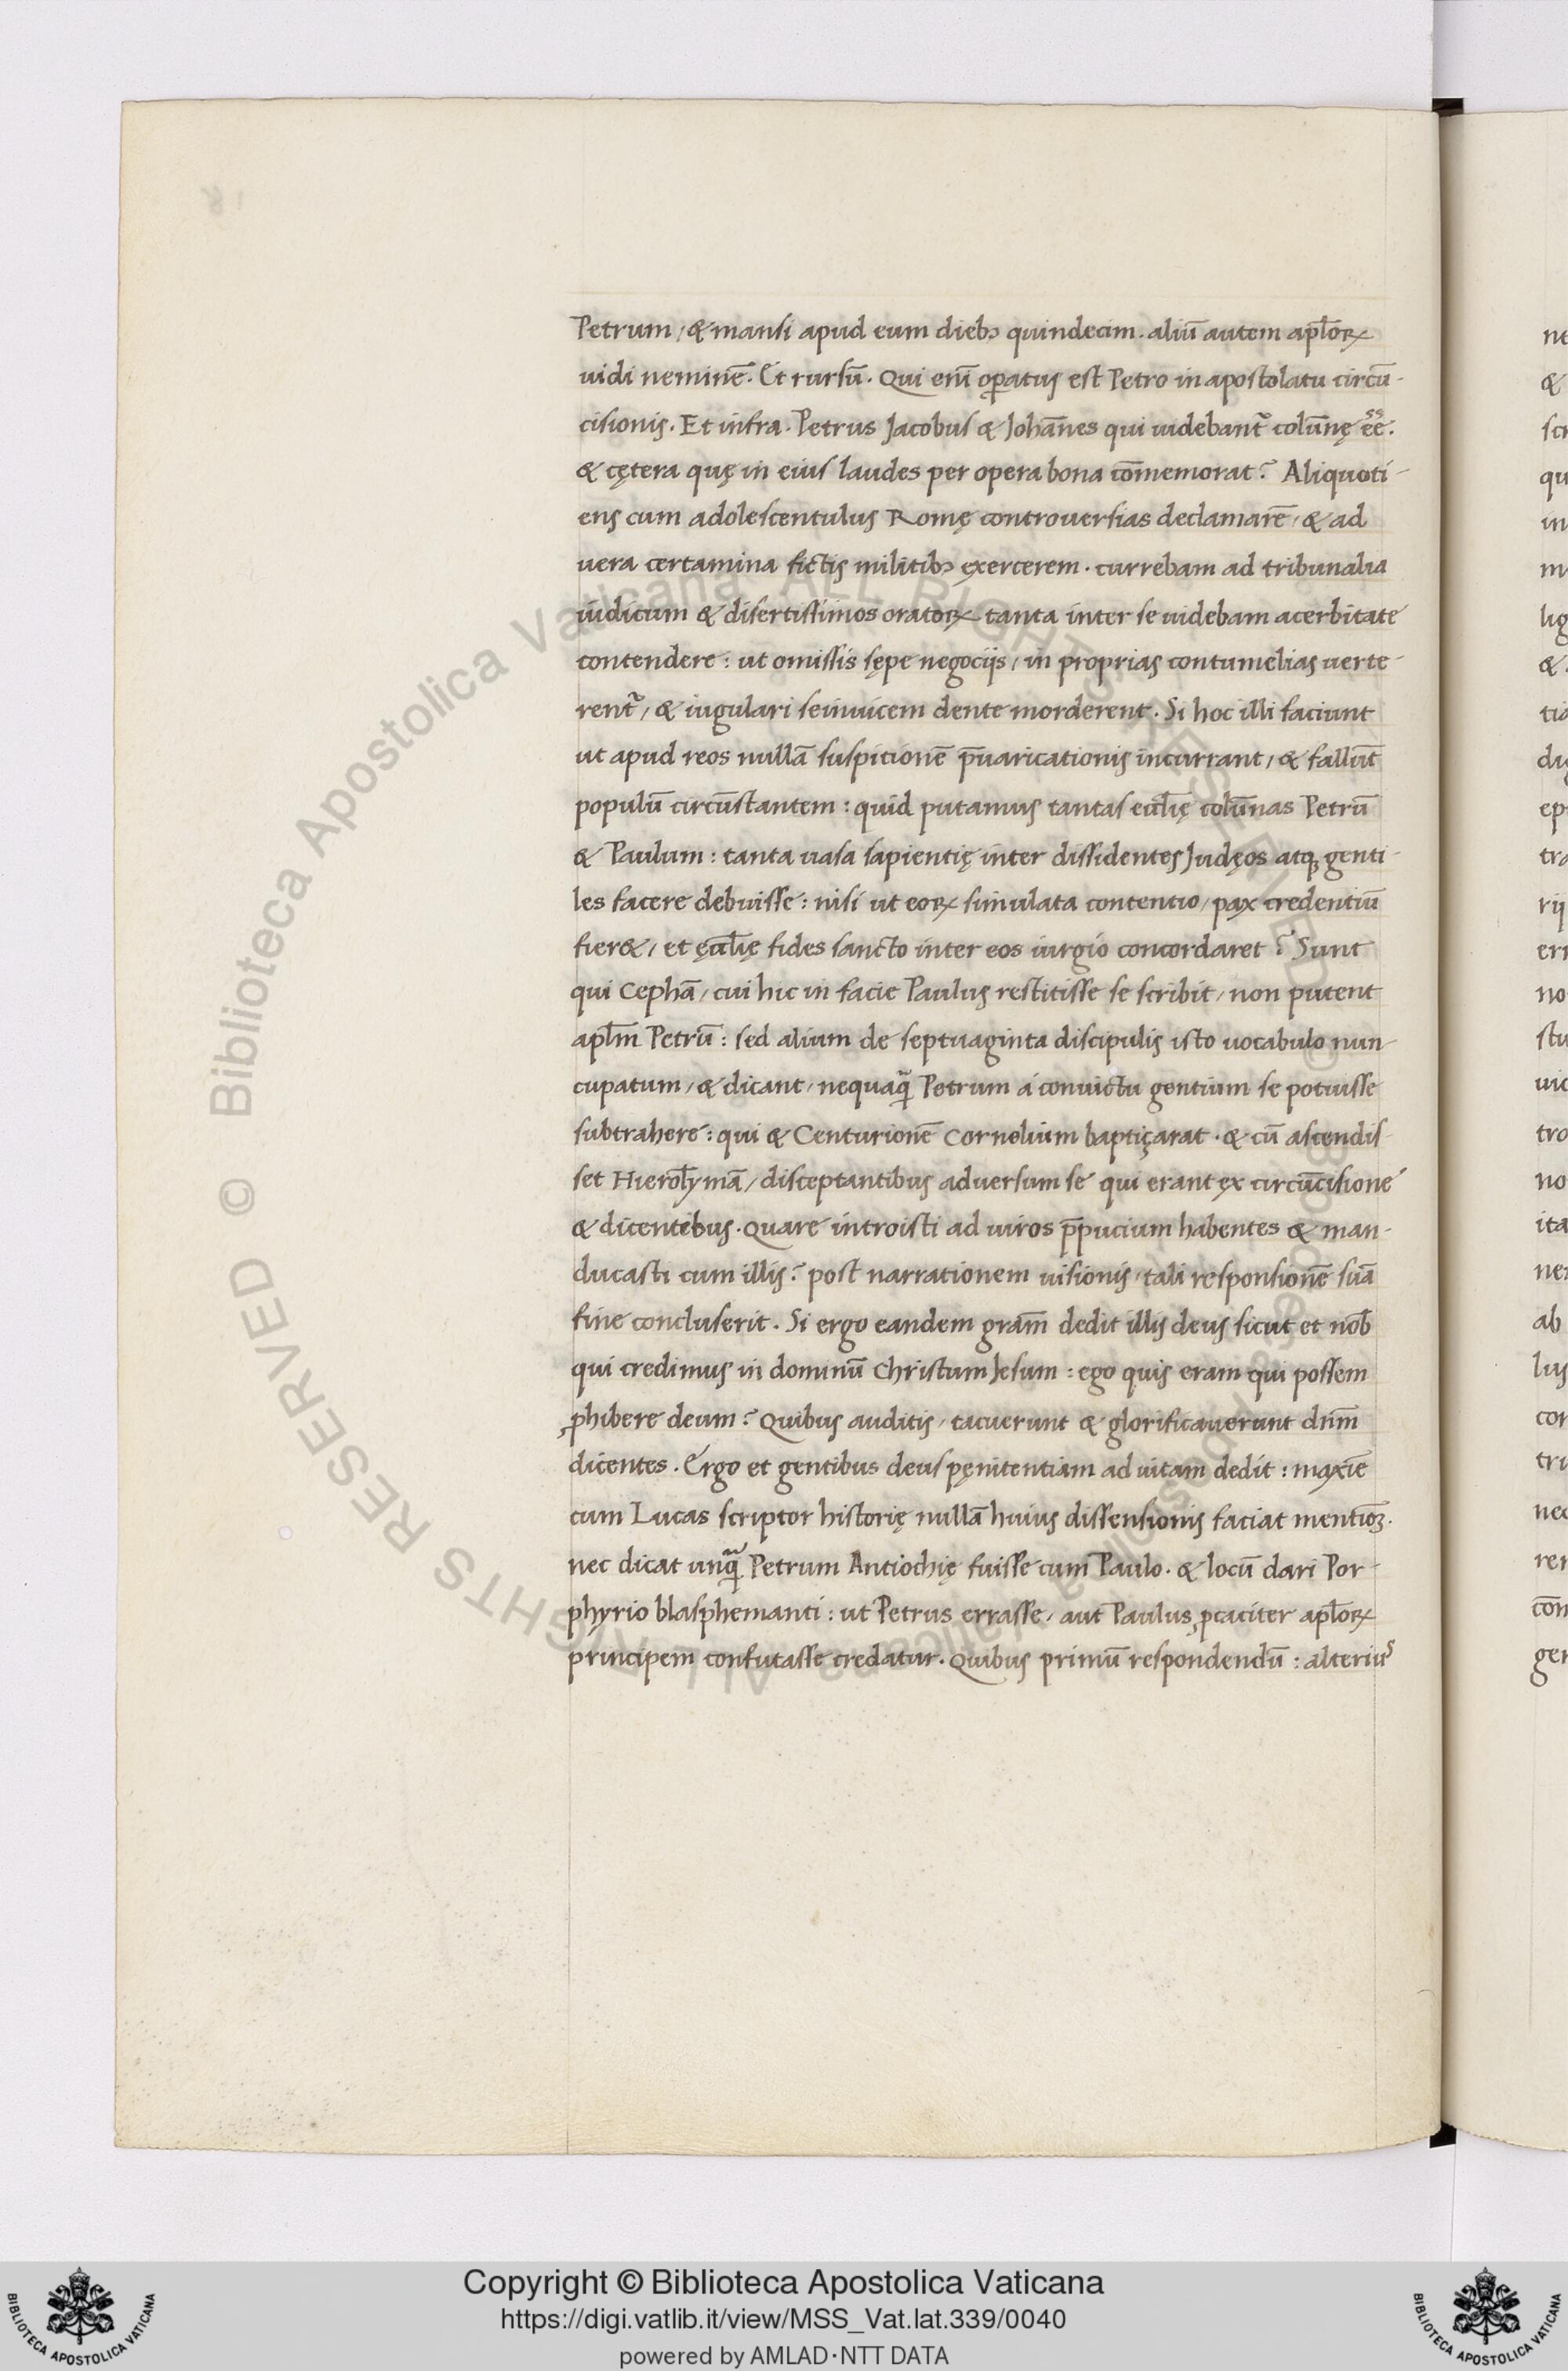 Petrum / & mansi apud eum diebꝫ quindecim. aliū autem apl̄oꝝ
uidi neminē. Et rursū. Qui eni̅ oꝑatus est Petro in apostolatu circū-
cisionis. Et infra. Petrus Jacobus & Johān̄es qui uidebant᷑ colūnę ēē.
& cętera quę in eius laudes per opera bona cōmemorat? Aliquoti-
ens cum adolescentulus Romę controuersias declamarē / & ad
uera certamina fictis militibꝫ exercerem. currebam ad tribunalia
iudicum & disertissimos oratoꝝ tanta inter se uidebam acerbitate
contendere: ut omissis sępe negocijs / in proprias contumelias uerte-
rent᷑ / & iugulari seinuicem dente morderent. Si hoc illi faciunt
ut apud reos nullā suspitionē p̄uaricationis incurrant / & fallūt
populū circūstantem: quid putamus tantas eccl̄ię colūnas Petrū
& Paulum: tanta uasa sapientię inter dissidentes Judęos atqꝫ genti-
les facere debuisse: nisi ut eoꝝ simulata contentio / pax credentiū
fier& / et ęccl̄ię fides sancto inter eos iurgio concordaret? Sunt
qui Cephā / cui hic in facie Paulus restitisse se scribit / non putent
apl̄m Petrū: sed alium de septuaginta discipulis isto uocabulo nun-
cupatum / & dicant / nequaqᷓ Petrum a conuictu gentium se potuisse
subtrahere: qui & Centurionē Cornelium baptiçarat. & cū ascendis-
set Hierosl̄ymā / disceptantibus aduersum se qui erant ex circūcisione
& dicentibus. Quare introisti ad uiros p̄pucium habentes & man-
ducasti cum illis? post narrationem uisionis / tali responsionē suā
fine concluserit. Si ergo eandem grām dedit illis deus sicut et nob̄
qui credimus in dominū Christum Jesum: ego quis eram qui possem
ꝓhibere deum? Quibus auditis / tacuerunt & glorificauerunt dn̄m
dicentes. Ergo et gentibus deus pęnitentiam ad uitam dedit: maxīe
cum Lucas scriptor historię nullā huius dissensionis faciat mentiōꝫ.
nec dicat unqᷓ Petrum Antiochię fuisse cum Paulo. & locū dari Por-
phyrio blasphemanti: ut Petrus errasse / aut Paulus ꝓcaciter apl̄oꝝ
principem confutasse credatur. Quibus primū respondendū: alterius
Copyright © Biblioteca Apostolica Vaticana
https://digi.vatlib.it/view/MSS_Vat.lat.339/0040
powered by AMLAD·NTT DATA